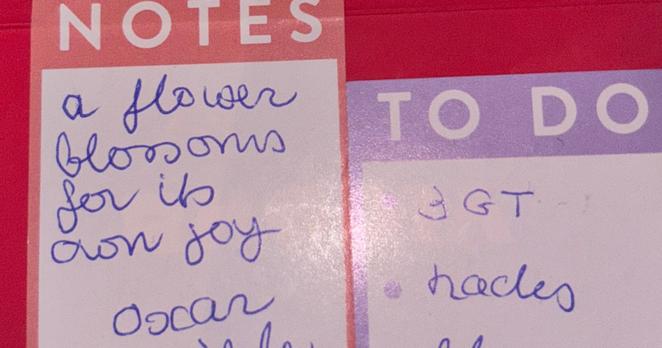 NOTES
a flower
blossoms
for its
own joy
Oscar
TO DO
3 GT